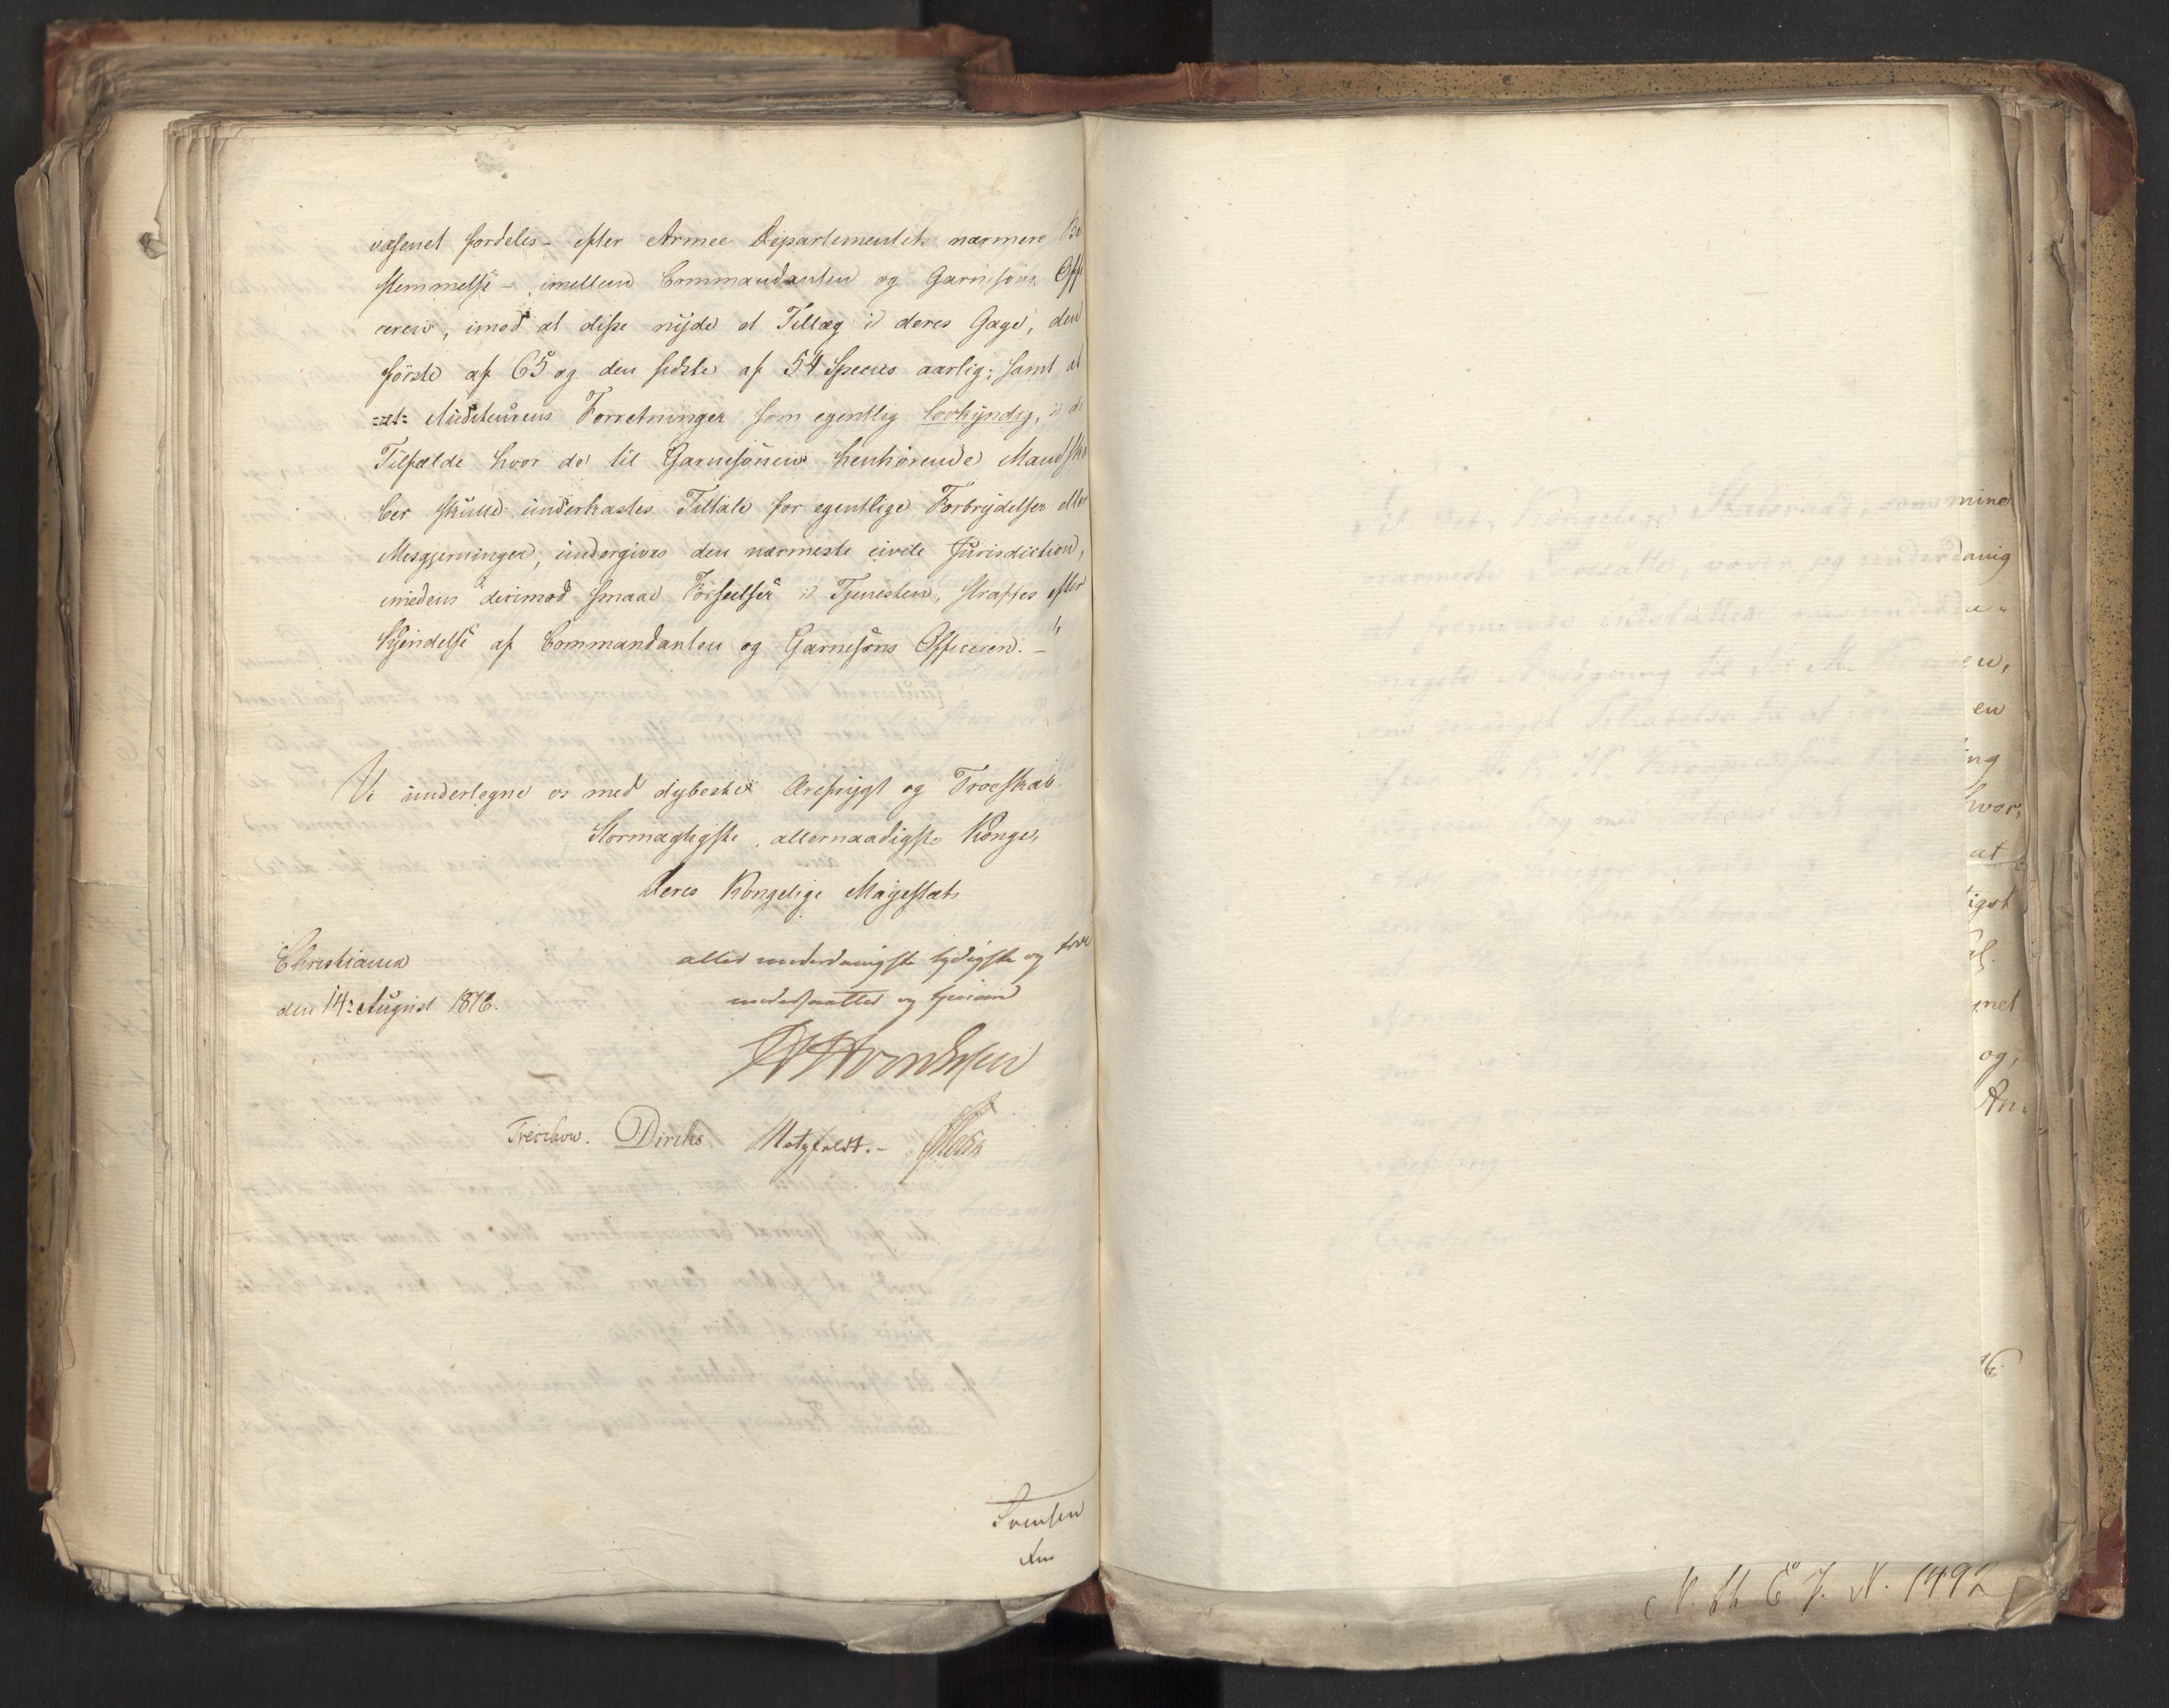 væsenet fordeles - efter Armee Departementets nærmere Be
stemmelse - imellem Commandanten og Garnisons Offi
ceren, imod at disse nyde et Tillæg i deres Gage, den
første af 65 og den sidste af 54 Species aarlig; samt at
=at= Auditeurens Forretninger som egentlig lovkyndig, i de
Tilfælde hvor de til Garnisonen henhørende Mandska
ber skulle underkastes Tiltale for egentlige Forbrydelser eller
Misgjerninger, undergives den nærmeste civile Jurisdiction,
imedens derimod smaae Forseelser i Tjenesten, straffes efter
Kjendelse af Commandanten og Garnisons Officeren. -
Vi undertegne os med dybeste Ærefrygt og Troeskab
Stormægtigste, allernaadigste Konge,
Deres Kongelige Majestæts
Christiania
den 14= August 1816.
allerunderdanigste lydigste og troe
undersaatter og tjenere
Treschow. Diriks Motzfeldt. -
Svensen
mine
danig
en,
en
ing
hvor,
at
igst
met
og,
An.
N. 66 E J. N. 1492